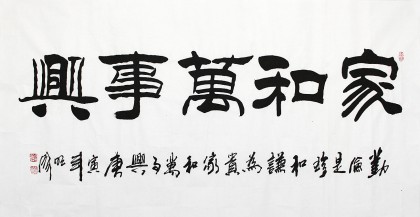 家和萬事興
勤儉是珍和謙為貴家和萬事興庚寅年